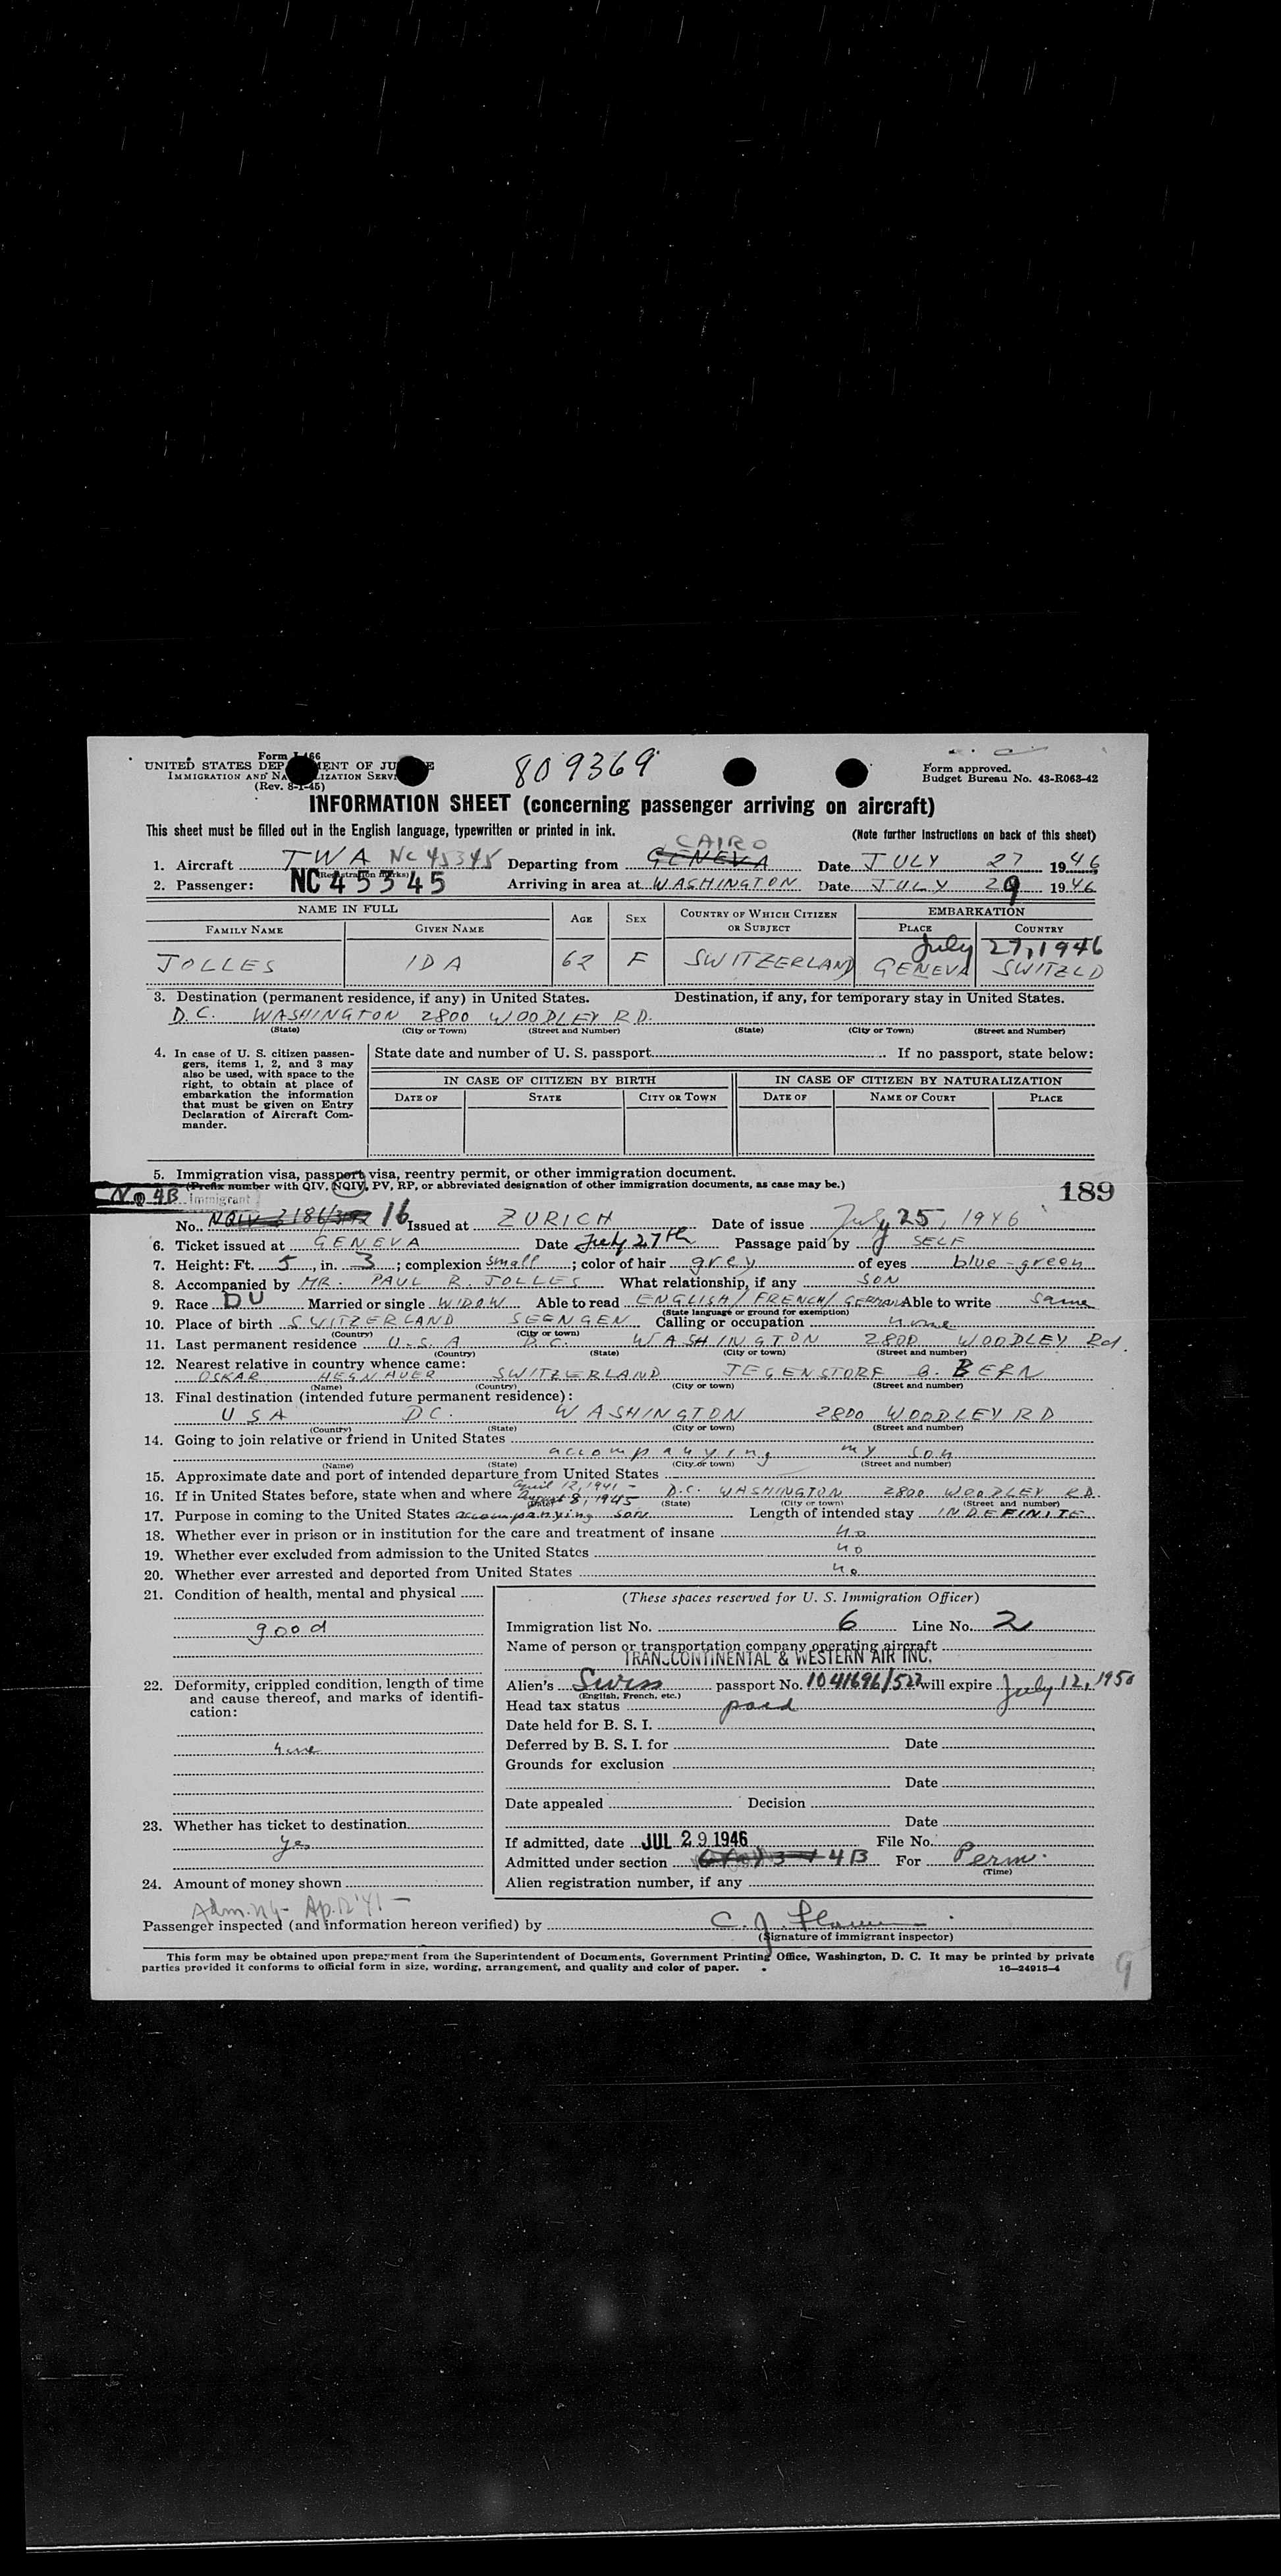 Form I-466
UNITED STATES DEPARTMENT OF JUSTICE
IMMIGRATION AND NATURALIZATION SERVICE
(Rev. 8-1-45)
809369
Form approved.
Budget Bureau No. 43-R063-42
INFORMATION SHEET (concerning passenger arriving on aircraft)
This sheet must be filled out in the English language, typewritten or printed in ink.
(Note further instructions on back of this sheet)
CAIRO
1. Aircraft TWA NC 45345 Departing from GENEVA Date JULY 27 1946
(Registration marks)
2. Passenger: NC 45345 Arriving in area at WASHINGTON Date JULY 29 1946
NAME IN FULL AGE SEX COUNTRY OF WHICH CITIZEN OR SUBJECT EMBARKATION
FAMILY NAME GIVEN NAME PLACE COUNTRY
July 27, 1946
JOLLES IDA 62 F SWITZERLAND GENEVA SWITZLD
3. Destination (permanent residence, if any) in United States. Destination, if any, for temporary stay in United States.
D.C. WASHINGTON 2800 WOODLEY RD.
(State) (City or Town) (Street and Number) (State) (City or Town) (Street and Number)
4. In case of U. S. citizen passengers, items 1, 2, and 3 may also be used, with space to the right, to obtain at place of embarkation the information that must be given on Entry Declaration of Aircraft Commander.
State date and number of U. S. passport If no passport, state below:
IN CASE OF CITIZEN BY BIRTH IN CASE OF CITIZEN BY NATURALIZATION
DATE OF STATE CITY OR TOWN DATE OF NAME OF COURT PLACE
5. Immigration visa, passport visa, reentry permit, or other immigration document.
(Prefix number with QIV, NQIV, PV, RP, or abbreviated designation of other immigration documents, as case may be.)
NQ 4B Immigrant
189
No. 16 Issued at ZURICH Date of issue July 25, 1946
6. Ticket issued at GENEVA Date July 27th Passage paid by SELF
7. Height: Ft. 5, in. 3; complexion small; color of hair grey of eyes blue-green
8. Accompanied by MR. PAUL R. JOLLES What relationship, if any SON
9. Race DU Married or single WIDOW Able to read ENGLISH/FRENCH/GERMAN Able to write same
(State language or ground for exemption)
10. Place of birth SWITZERLAND SEENGEN Calling or occupation none
(Country) (City or town)
11. Last permanent residence U.S.A D.C. WASHINGTON 2800 WOODLEY Rd.
(Country) (State) (City or town) (Street and number)
12. Nearest relative in country whence came:
OSKAR HEGNAUER SWITZERLAND JEGENSTORF B. BERN
(Name) (Country) (City or town) (Street and number)
13. Final destination (intended future permanent residence):
USA DC. WASHINGTON 2800 WOODLEY RD
(Country) (State) (City or town) (Street and number)
14. Going to join relative or friend in United States
accompanying my son
(Name) (State) (City or town) (Street and number)
15. Approximate date and port of intended departure from United States
April 12, 1941 -
16. If in United States before, state when and where August 8, 1945 D.C. WASHINGTON 2800 WOODLEY RD.
(Date) (State) (City or town) (Street and number)
17. Purpose in coming to the United States accompanying son Length of intended stay INDEFINITE
18. Whether ever in prison or in institution for the care and treatment of insane no
19. Whether ever excluded from admission to the United States no
20. Whether ever arrested and deported from United States no
21. Condition of health, mental and physical
good
22. Deformity, crippled condition, length of time and cause thereof, and marks of identification:
none
23. Whether has ticket to destination
yes
24. Amount of money shown
(These spaces reserved for U. S. Immigration Officer)
Immigration list No. 6 Line No. 2
Name of person or transportation company operating aircraft
TRANSCONTINENTAL & WESTERN AIR INC.
Alien's Swiss passport No. 1041696/522 will expire July 12, 1950
(English, French, etc.)
Head tax status paid
Date held for B. S. I.
Deferred by B. S. I. for Date
Grounds for exclusion
Date
Date appealed Decision
Date
If admitted, date JUL 29 1946 File No.
Admitted under section 4B For Perm.
(Time)
Alien registration number, if any
Adm. NY - Ap. 12 '41 -
Passenger inspected (and information hereon verified) by C. J.
(Signature of immigrant inspector)
This form may be obtained upon prepayment from the Superintendent of Documents, Government Printing Office, Washington, D. C. It may be printed by private
parties provided it conforms to official form in size, wording, arrangement, and quality and color of paper. 16—24915-4
9